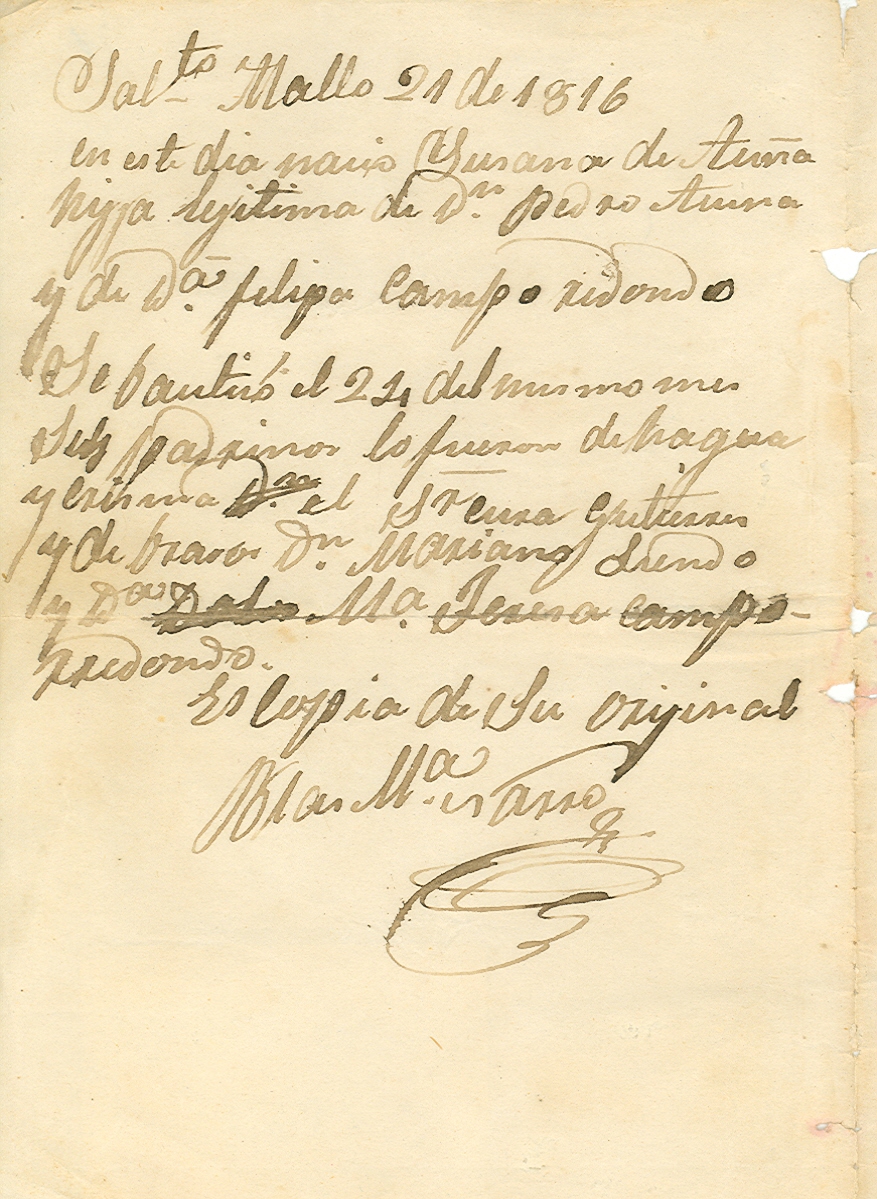 Salto Mallo 21 de 1816
en este dia nacio Susana de Acuña
hijja lejitima de Dn. Pedro Acuna
y de Da. felipa Campo redondo
Se bautisó el 24 del mismo mes
Sus padrinos lo fueron de hagua
y crisma Dn. el Sr cura Gutierres
y de brasos Dn. Mariano Liendo
y Da Ma. Teresa Campo-
rredondo.
Es Copia de Su orijinal
Blas Ma.